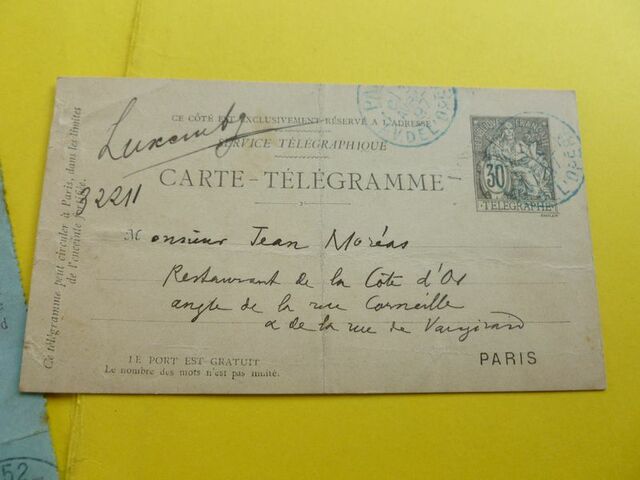 CE CÔTÉ EST EXCLUSIVEMENT RÉSERVÉ A L'ADRESSE
SERVICE TÉLÉGRAPHIQUE
CARTE-TÉLÉGRAMME
Luxembg
92211
Ce télégramme peut circuler à Paris, dans les limites
de l'enceinte fortifiée.
30
TÉLÉGRAPHE
DE L'OPÉRA
L'OPÉRA
Monsieur Jean Moréas
Restaurant de la Côte d'Or
angle de la rue Corneille
& de la rue de Vaugirard
PARIS
LE PORT EST GRATUIT
Le nombre des mots n'est pas limité.
d
52